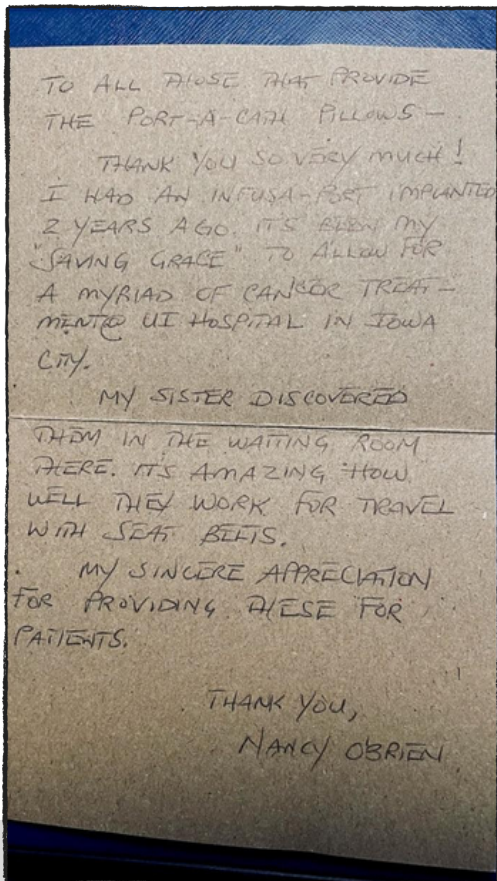 TO ALL THOSE THAT PROVIDE
THE PORT-A-CATH PILLOWS -
THANK YOU SO VERY MUCH!
I HAD AN INFUSA-PORT IMPLANTED
2 YEARS AGO. IT'S BEEN MY
"SAVING GRACE" TO ALLOW FOR
A MYRIAD OF CANCER TREAT-
MENT@ UI HOSPITAL IN IOWA
CITY.
MY SISTER DISCOVERED
THEM IN THE WAITING ROOM
THERE. IT'S AMAZING HOW
WELL THEY WORK FOR TRAVEL
WITH SEAT BELTS.
MY SINCERE APPRECIATION
FOR PROVIDING THESE FOR
PATIENTS.
THANK YOU,
NANCY O'BRIEN